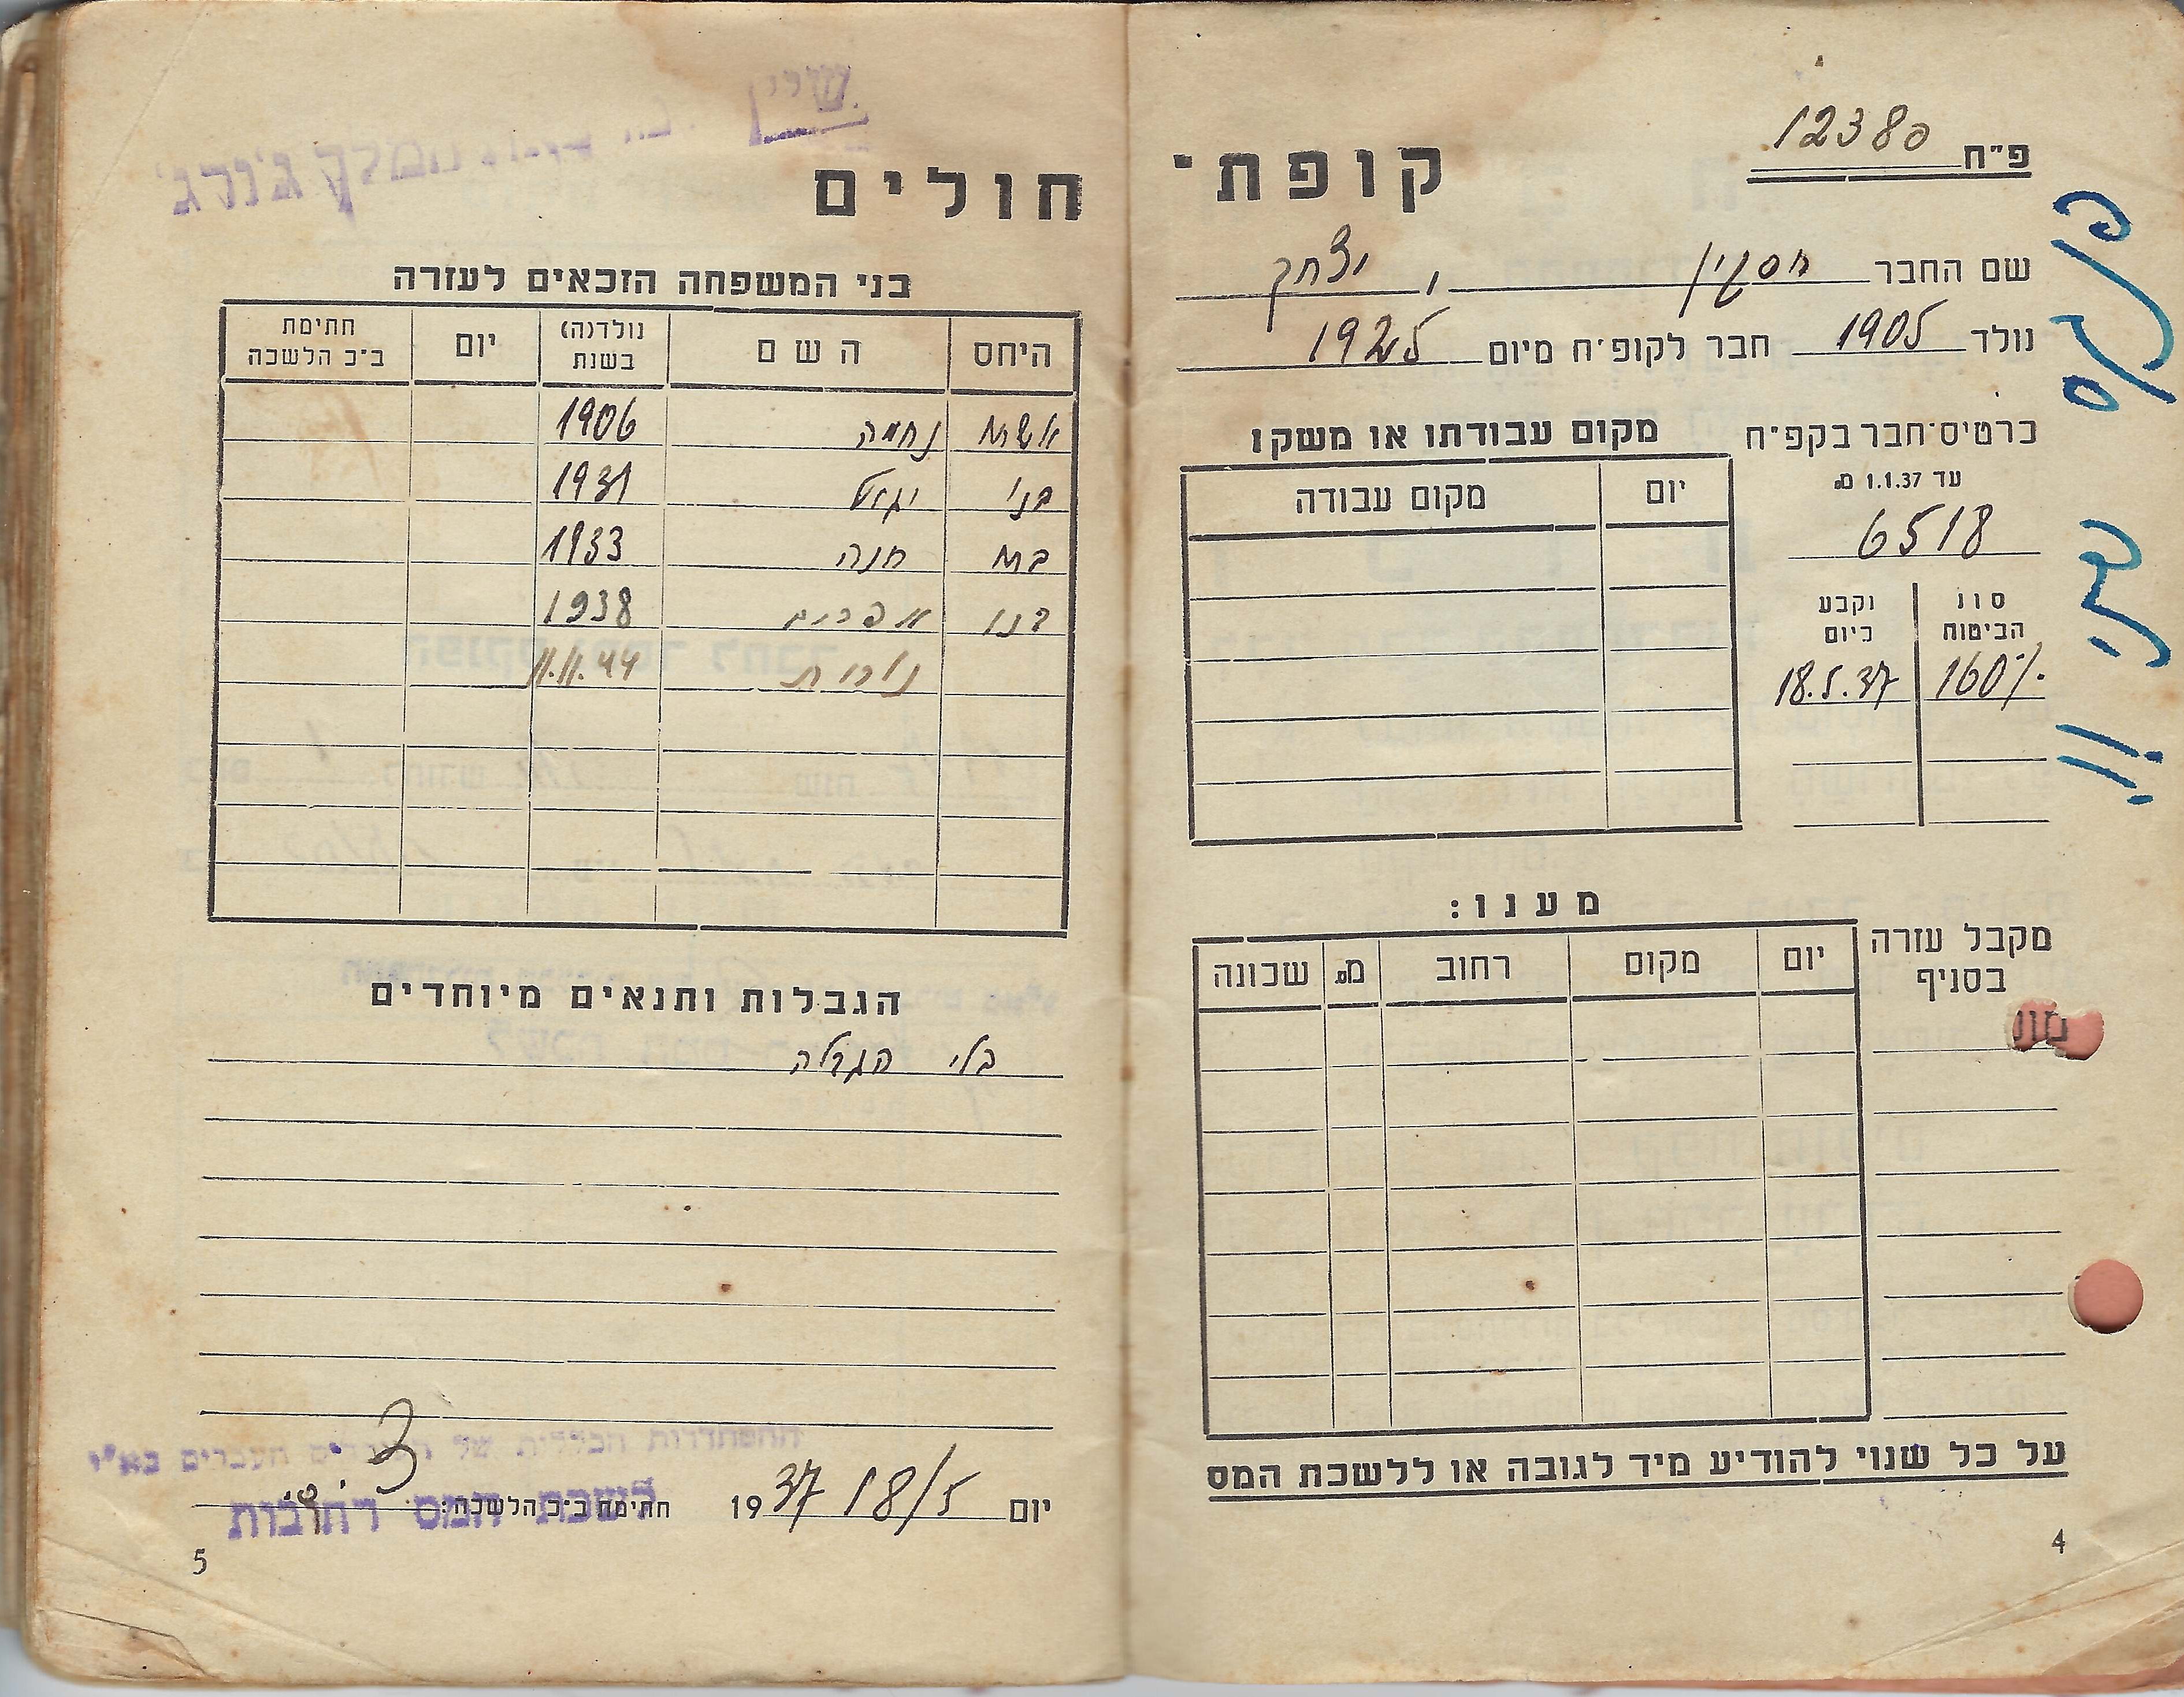 פ״ח 12380
קופת־
שם החבר חסקין, יצחק
נולד 1905 חבר לקופ״ח מיום 1925
כרטיס־חבר בקפ״ח
עד 1.1.37 מס
6518
סוג הביטוח
נקבע ביום
160%
18.5.37
מקום עבודתו או משקו
יום
מקום עבודה
מקבל עזרה
בסניף
מענו:
יום
מקום
רחוב
מס
שכונה
על כל שנוי להודיע מיד לגובה או ללשכת המס
4
פנקס שני !!
חולים
המלך ג׳ורג׳
בני המשפחה הזכאים לעזרה
היחס
השם
נולד(ה) בשנת
יום
חתימת ב״כ הלשכה
אשתו נחמה 1906
בנו יגאל 1931
בתו חנה 1933
בנו אפרים 1938
נורית 11.11.44
הגבלות ותנאים מיוחדים
בלי הגבלה
ההסתדרות הכללית של העובדים העברים בא״י
לשכת המס רחובות
יום 18/5 1937 חתימת ב״כ הלשכה:
5